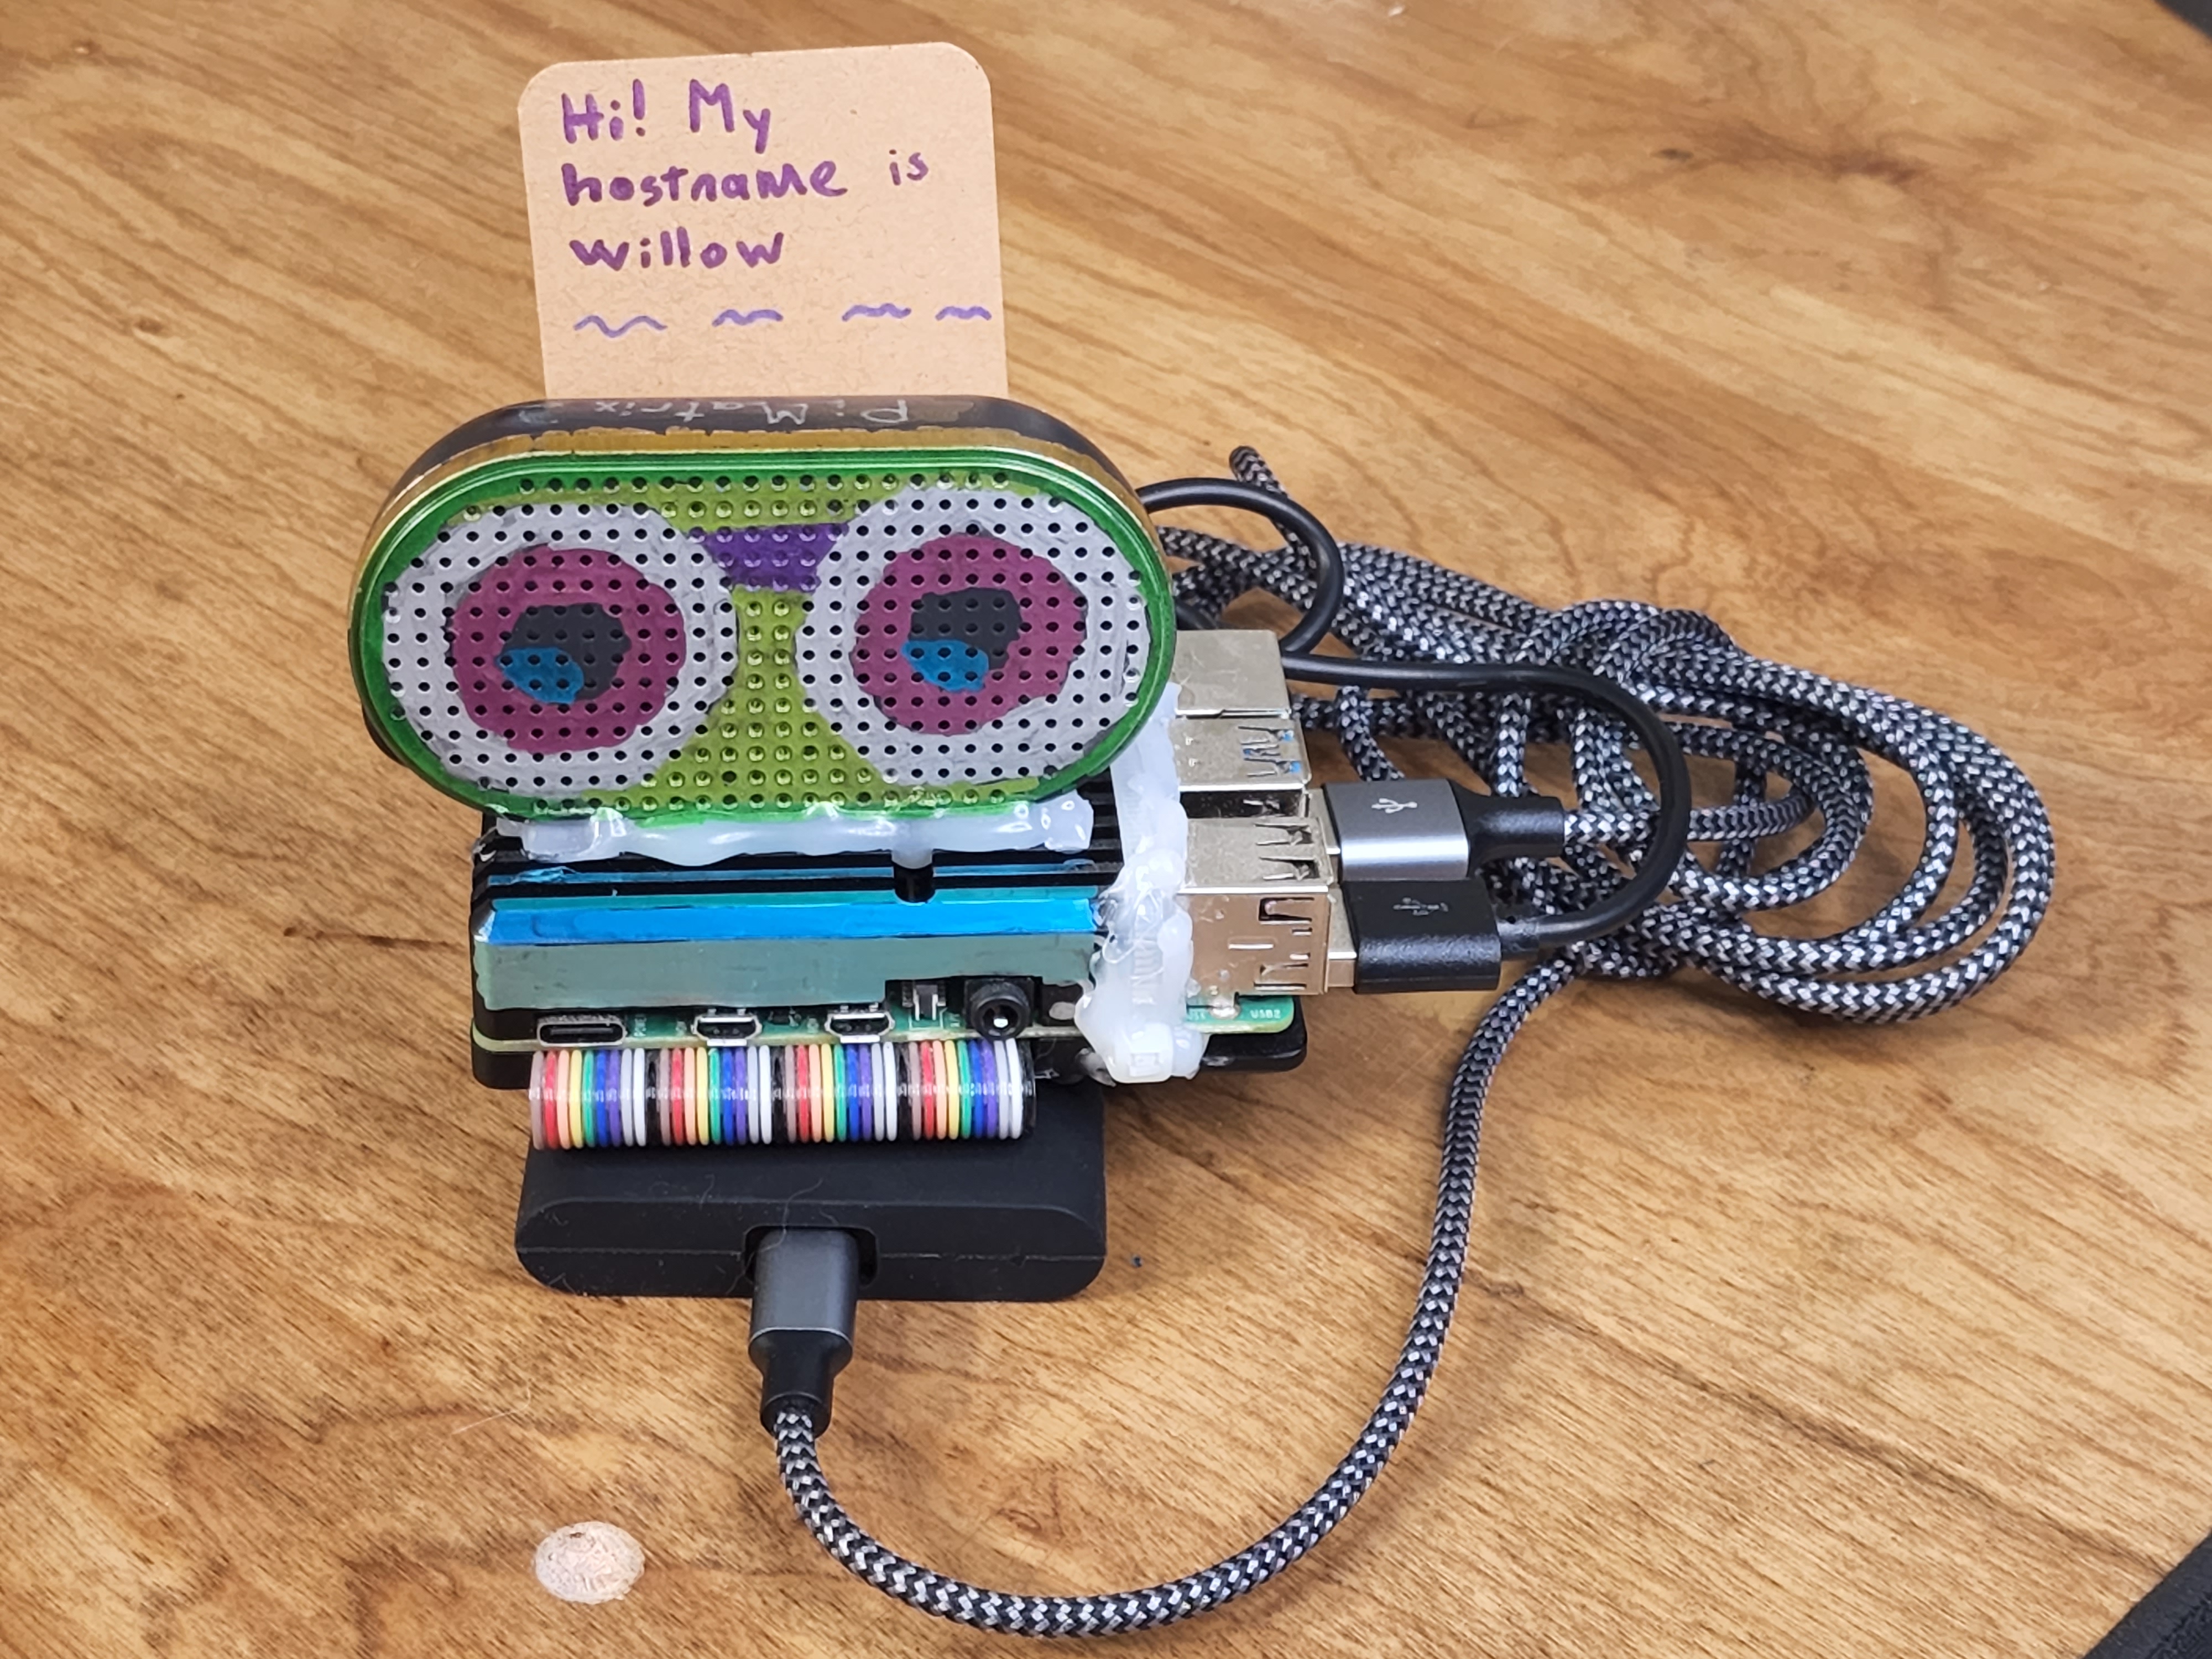 Hi! My
hostname is
willow
Pi Matrix
USB2